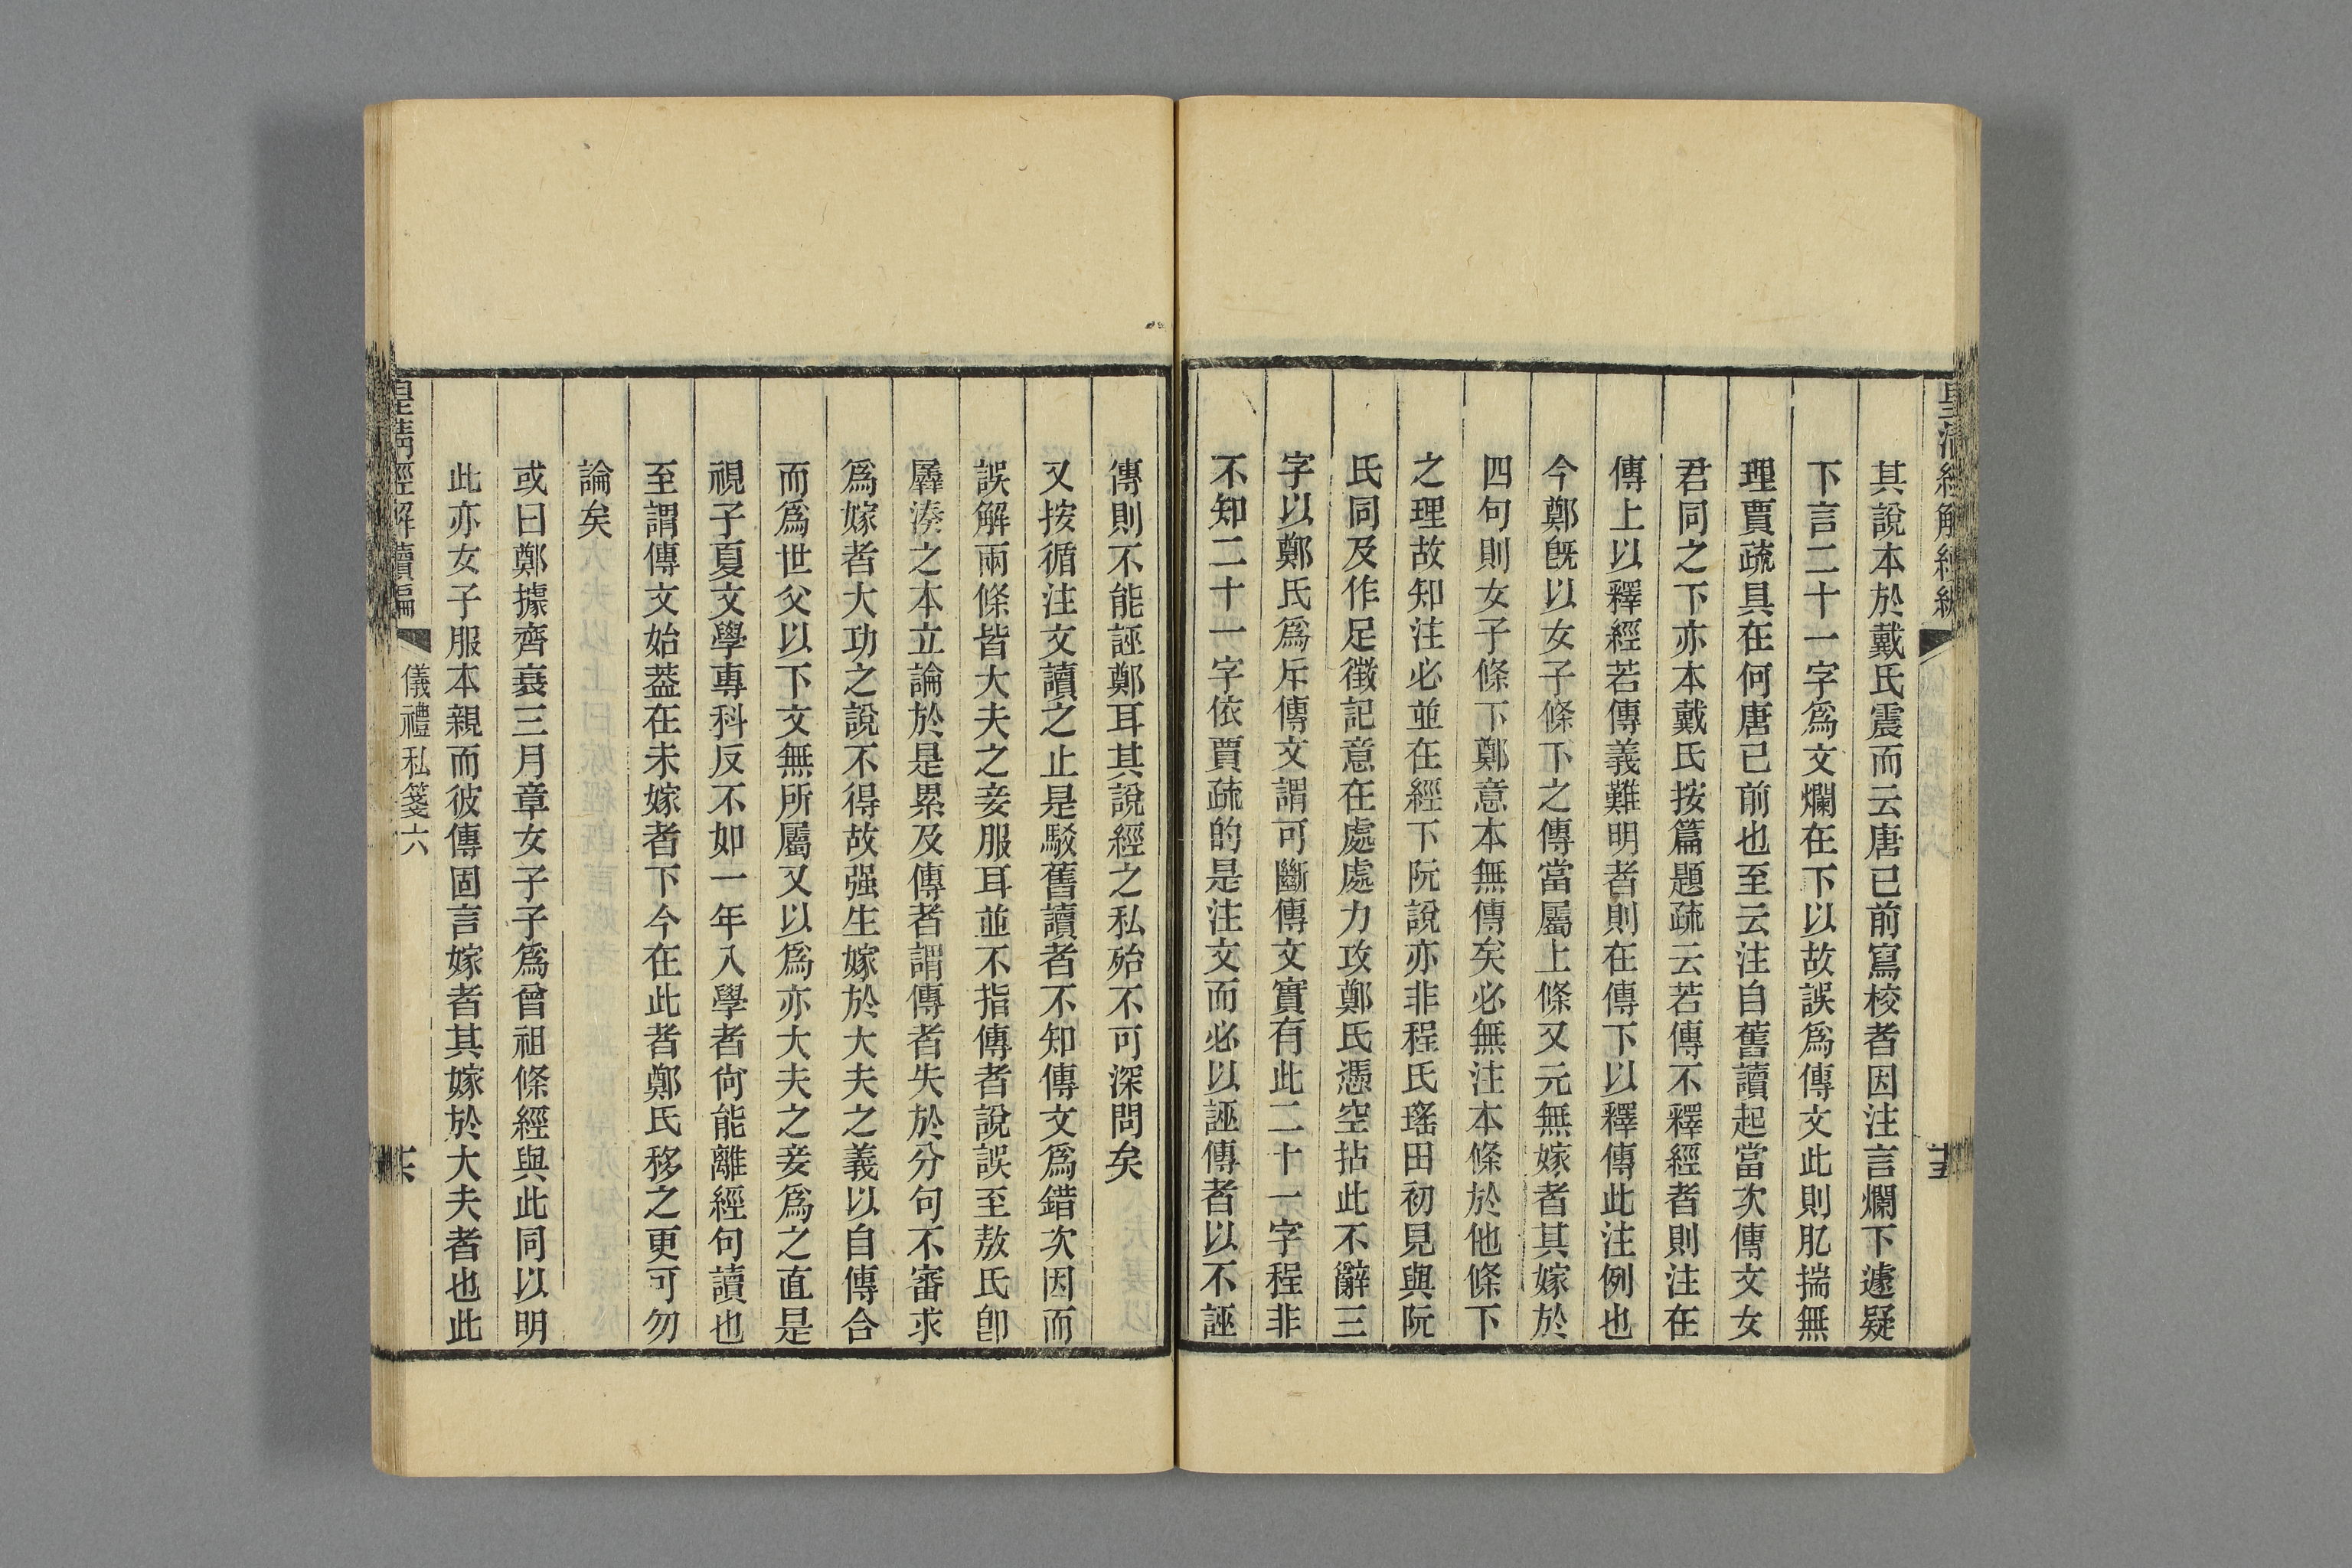 皇清經解續編
其說本於戴氏震而云唐已前寫校者因注言爛下遽疑
下言二十一字爲文爛在下以故誤爲傳文此則肊揣無
理賈疏具在何唐已前也至云注自舊讀起當次傳文女
君同之下亦本戴氏按篇題疏云若傳不釋經者則注在
傳上以釋經若傳義難明者則在傳下以釋傳此注例也
今鄭旣以女子條下之傳當屬上條又元無嫁者其嫁於
四句則女子條下鄭意本無傳矣必無注本條於他條下
之理故知注必並在經下阮說亦非程氏瑤田初見與阮
氏同及作足徵記意在處處力攻鄭氏憑空拈此不辭三
字以鄭氏爲斥傳文謂可斷傳文實有此二十一字程非
不知二十一字依賈疏的是注文而必以誣傳者以不誣
傳則不能誣鄭耳其說經之私殆不可深問矣
又按循注文讀之止是駁舊讀者不知傳文爲錯次因而
誤解兩條皆大夫之妾服耳並不指傳者說誤至敖氏卽
羼湊之本立論於是累及傳者謂傳者失於分句不審求
爲嫁者大功之說不得故强生嫁於大夫之義以自傳合
而爲世父以下文無所屬又以爲亦大夫之妾爲之直是
視子夏文學專科反不如一年入學者尙能離經句讀也
至謂傳文始葢在未嫁者下今在此者鄭氏移之更可勿
論矣
或曰鄭據齊衰三月章女子子爲曾祖條經與此同以明
此亦女子服本親而彼傳固言嫁者其嫁於大夫者也此
皇清經解續編
儀禮私箋六